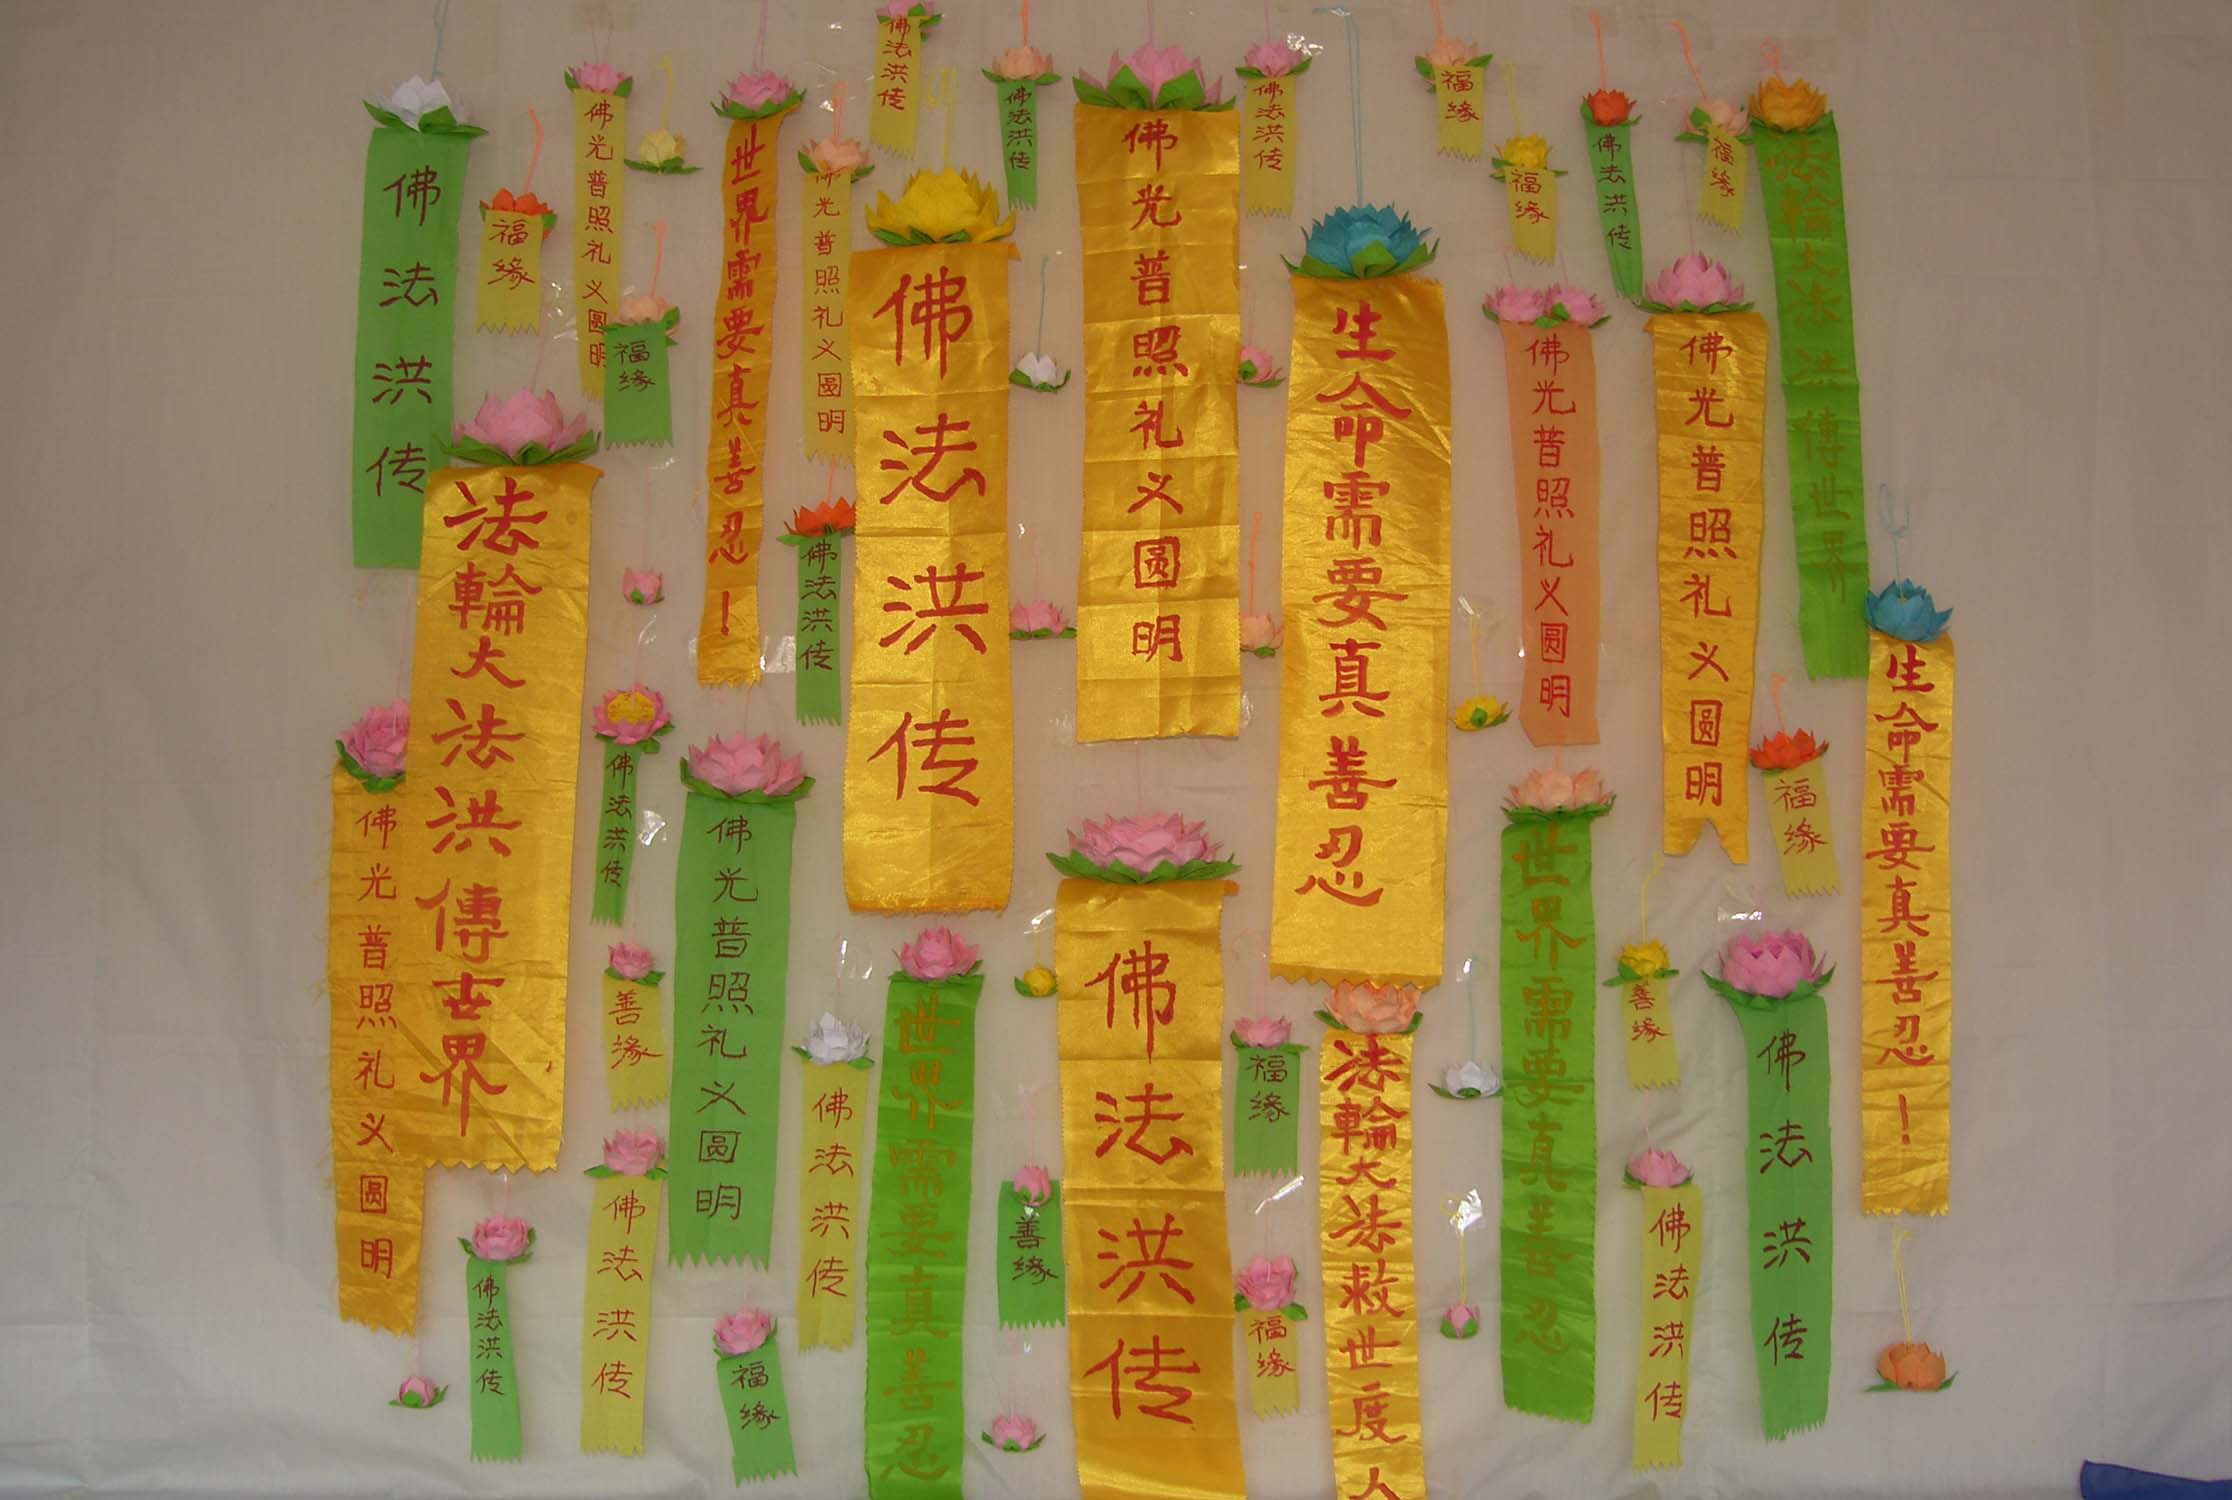 佛法洪传
福缘
佛光普照礼义圆明
福缘
世界需要真善忍！
佛光普照礼义圆明
佛法洪传
佛法洪传
佛法洪传
佛光普照礼义圆明
佛法洪传
生命需要真善忍
福缘
福缘
佛法洪传
福缘
法輪大法洪傳世界
佛光普照礼义圆明
佛光普照礼义圆明
法輪大法洪傳世界
佛光普照礼义圆明
佛法洪传
佛法洪传
佛光普照礼义圆明
福缘
生命需要真善忍！
善缘
佛法洪传
世界需要真善忍
佛法洪传
福缘
法輪大法救世度人
世界需要真善忍
善缘
佛法洪传
佛法洪传
佛法洪传
福缘
善缘
福缘
佛法洪传
佛法洪传